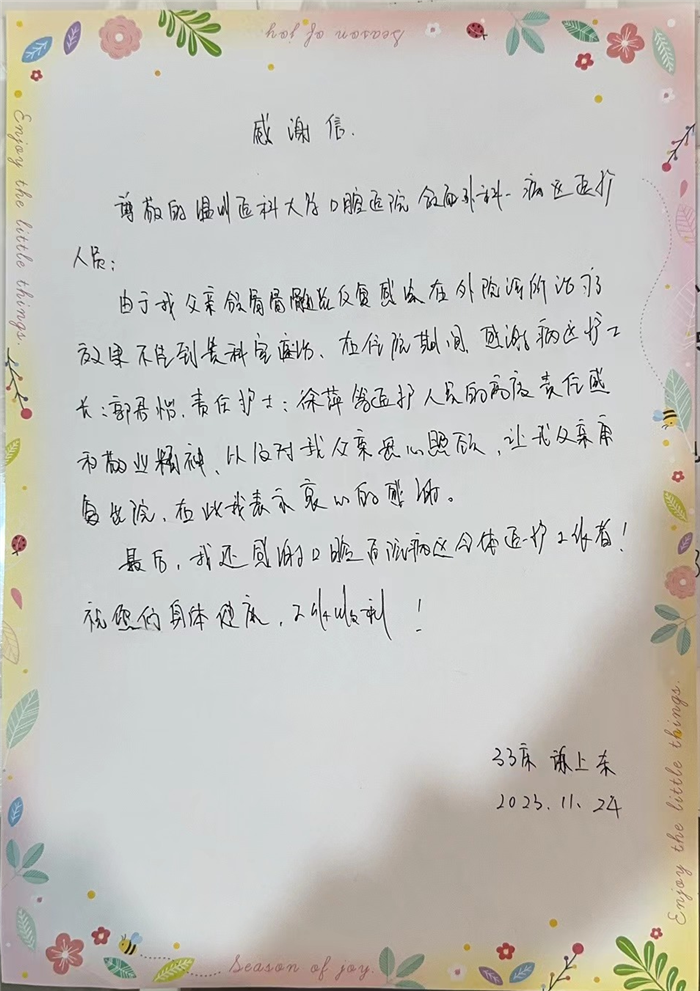 Season of joy
Enjoy the little things.
感谢信.
尊敬的温州医科大学口腔医院颌面外科一病区医护
人员：
由于我父亲颌骨骨髓炎反复感染在外院诊所治疗
效果不佳到贵科室医治、在住院期间,感谢病区护士
长：郭君怡、责任护士：徐萍等医护人员的高度责任感
和敬业精神、以及对我父亲悉心照顾，让我父亲康
复出院，在此我表示衷心的感谢。
最后，我还感谢口腔医院病区全体医护工作者！
祝您们身体健康，工作顺利！
33床 谢上东
2023.11.24
Enjoy the little things.
Season of joy.